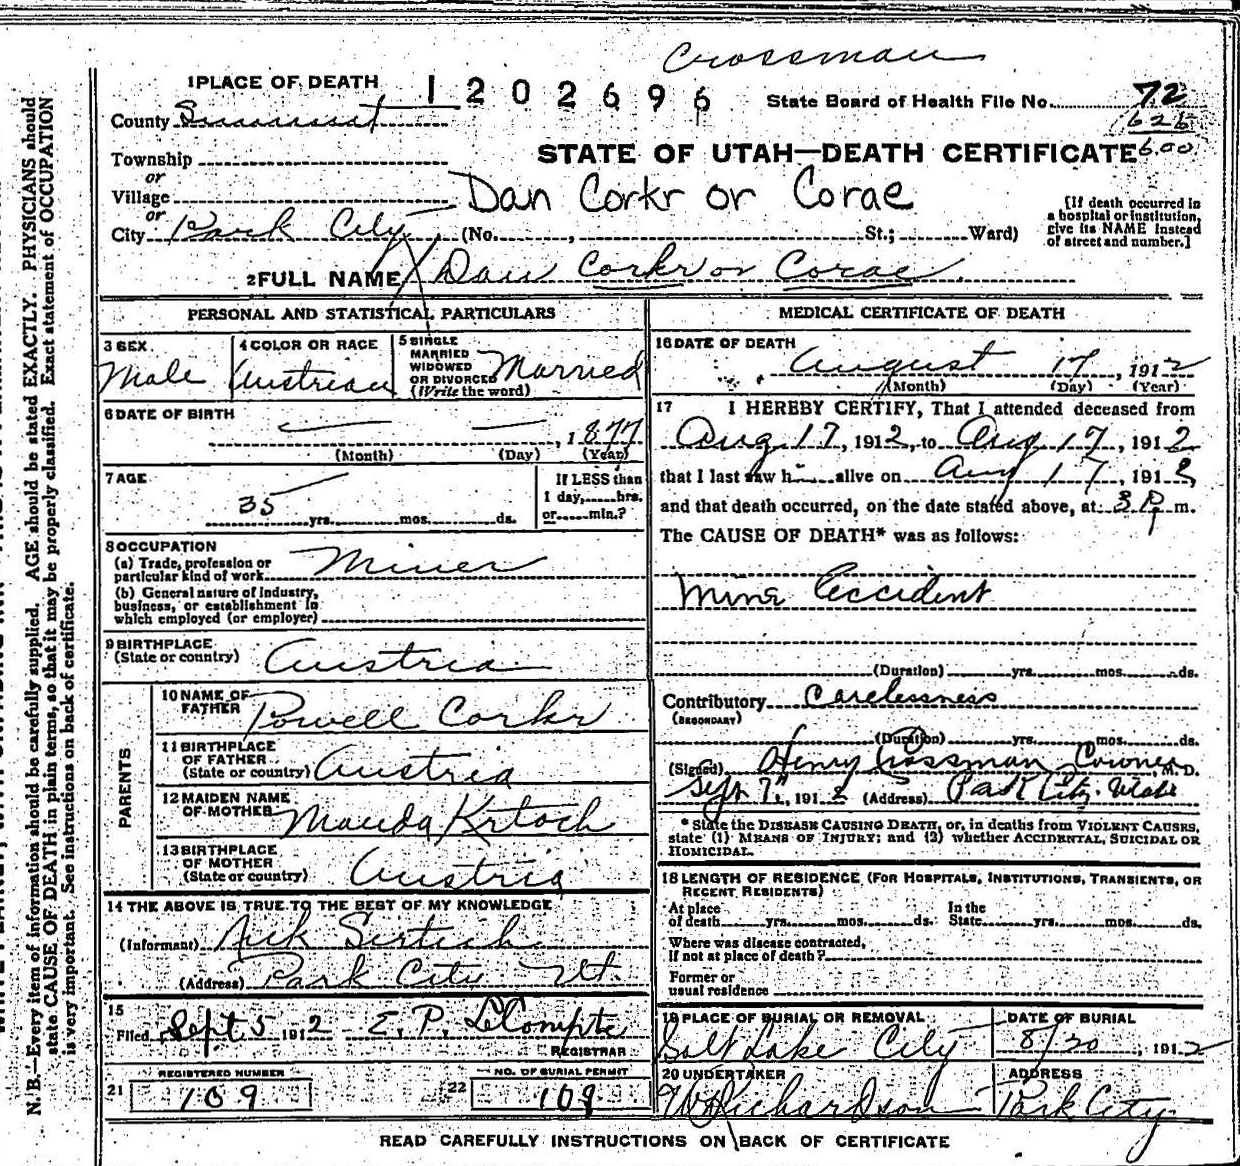 Crossman
1 PLACE OF DEATH
1202696
State Board of Health File No. 72
County Summit
626
STATE OF UTAH—DEATH CERTIFICATE 6.00
Township
or
Village
Dan Corkr or Corae
or
City Park City (No. , St.; Ward)
[If death occurred in
a hospital or institution,
give its NAME instead
of street and number.]
2 FULL NAME Dan Corkr or Corae
PERSONAL AND STATISTICAL PARTICULARS
3 SEX
Male
4 COLOR OR RACE
Austrian
5 SINGLE
MARRIED
WIDOWED
OR DIVORCED
(Write the word)
Married
6 DATE OF BIRTH
— — , 1877
(Month) (Day) (Year)
7 AGE
35 yrs. mos. ds.
If LESS than
1 day, hrs.
or min.?
8 OCCUPATION
(a) Trade, profession or
particular kind of work Miner
(b) General nature of industry,
business, or establishment in
which employed (or employer)
9 BIRTHPLACE
(State or country) Austria
PARENTS
10 NAME OF
FATHER Powell Corkr
11 BIRTHPLACE
OF FATHER
(State or country) Austria
12 MAIDEN NAME
OF MOTHER Manda Krtoch
13 BIRTHPLACE
OF MOTHER
(State or country) Austria
14 THE ABOVE IS TRUE TO THE BEST OF MY KNOWLEDGE
(Informant) Nick Sertich
(Address) Park City Ut.
15
Filed Sept 5 1912 E. P. LeCompte
REGISTRAR
REGISTERED NUMBER
21 109
NO. OF BURIAL PERMIT
22 109
MEDICAL CERTIFICATE OF DEATH
16 DATE OF DEATH
August 17, 1912
(Month) (Day) (Year)
17 I HEREBY CERTIFY, That I attended deceased from
Aug 17, 1912, to Aug 17, 1912
that I last saw h alive on Aug 17, 1912,
and that death occurred, on the date stated above, at 3 P. m.
The CAUSE OF DEATH* was as follows:
Mine Accident
(Duration) yrs. mos. ds.
Contributory Carelessness
(SECONDARY)
(Duration) yrs. mos. ds.
(Signed) Henry Crossman Coroner, M. D.
Sept 7", 1912 (Address) Park City. Utah
* State the DISEASE CAUSING DEATH, or, in deaths from VIOLENT CAUSES,
state (1) MEANS OF INJURY; and (2) whether ACCIDENTAL, SUICIDAL OR
HOMICIDAL.
18 LENGTH OF RESIDENCE (FOR HOSPITALS, INSTITUTIONS, TRANSIENTS, OR
RECENT RESIDENTS)
At place In the
of death yrs. mos. ds. State yrs. mos. ds.
Where was disease contracted,
if not at place of death?
Former or
usual residence
19 PLACE OF BURIAL OR REMOVAL
Salt Lake City
DATE OF BURIAL
8/20, 1912
20 UNDERTAKER
W Richardson
ADDRESS
Park City
READ CAREFULLY INSTRUCTIONS ON BACK OF CERTIFICATE
N. B.—Every item of information should be carefully supplied. AGE should be stated EXACTLY. PHYSICIANS should
state CAUSE OF DEATH in plain terms, so that it may be properly classified. Exact statement of OCCUPATION
is very important. See instructions on back of certificate.